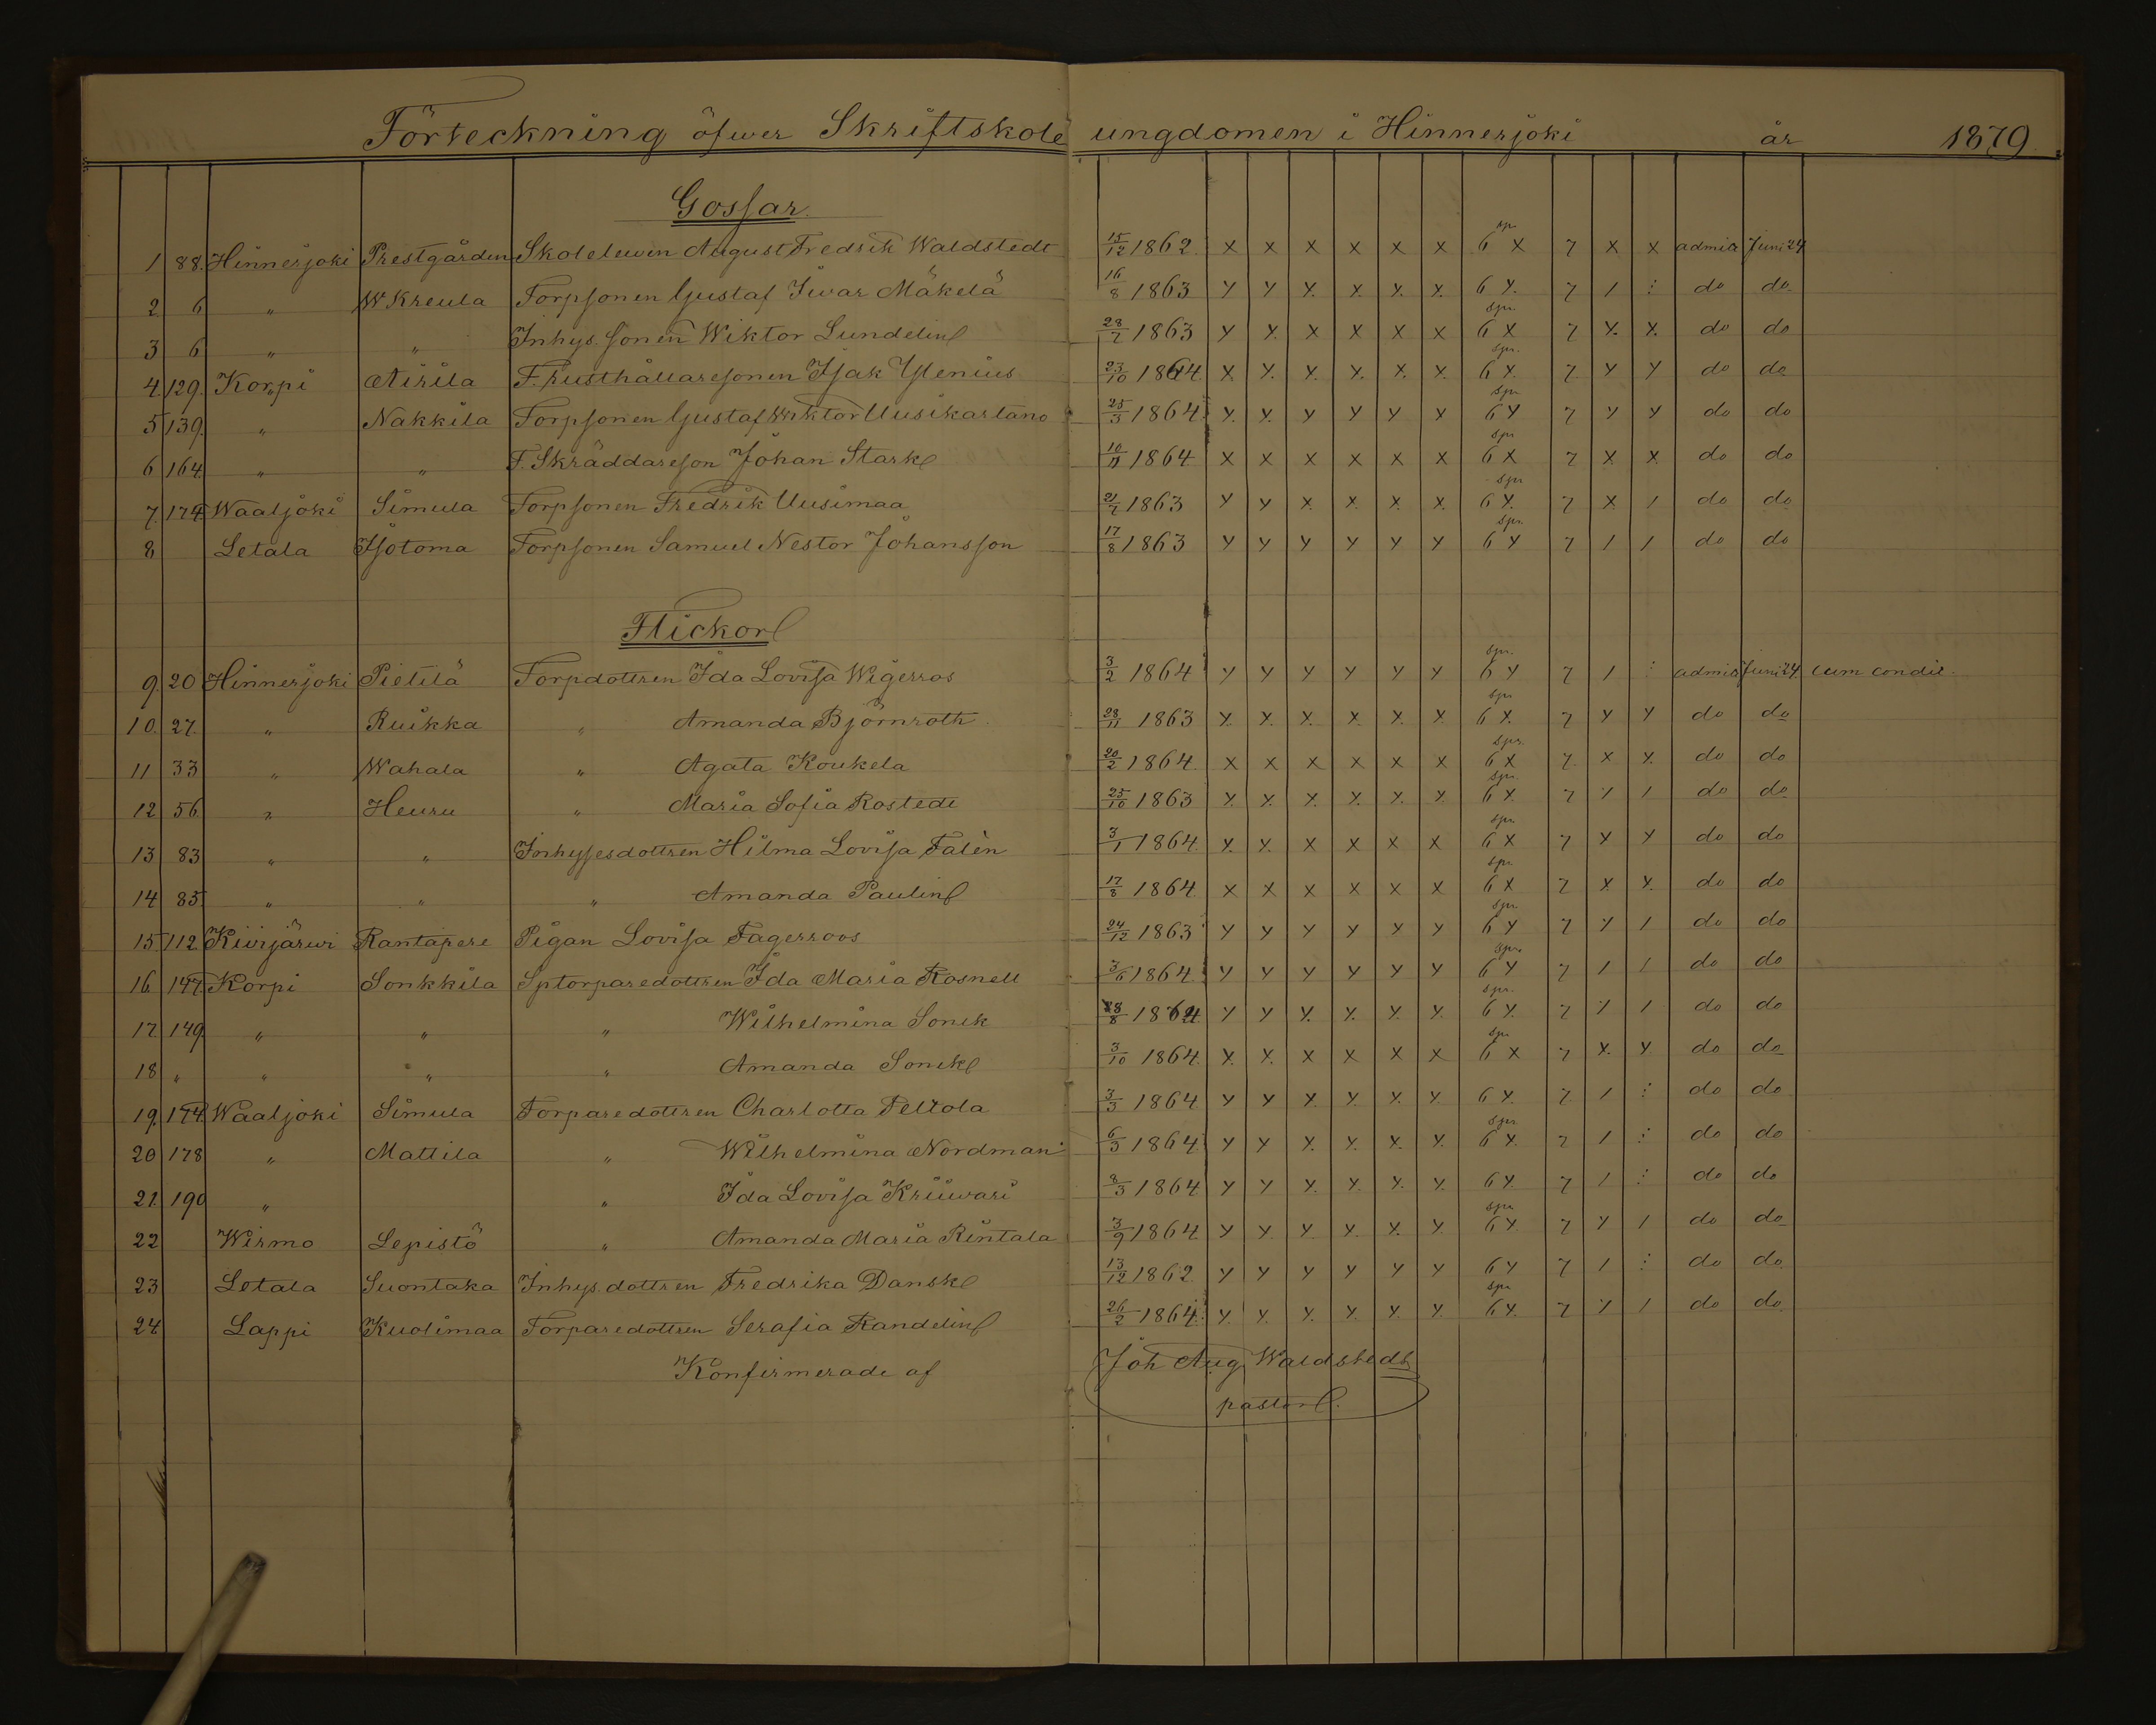 Förteckning öfwer Skriftskole ungdomen i Hinnerjoki år 1879
Gossar.
1 88. Hinnerjoki Prestgården Skolelewen August Fredrik Waldstedt 15/12 1862 x x x x x x 6 spr x 7 x x admis Juni 24
2 6 " W Kreula Torpsonen Gustaf Iwar Mäkelä 16/8 1863 y y y. y. y. y. 6 y. 7 / ⋮ do do
3 6 " " Inhys. sonen Wiktor Lundelin 28/7 1863 y y. x x x x 6 spr. x 7 y. y. do do
4. 129. Korpi Airila F. Rusthållaresonen Isak Ylenius 23/10 1864 x y. y. y. x. y. 6 spr. y. 7 y y do do
5 139. " Nakkila Torpsonen Gustaf Wiktor Uusikartano 25/3 1864 y. y. y y y y 6 spr y 7 y y do do
6 164. " " F. Skräddareson Johan Stark 1864 x x x x x x 6 spr x 7 x x do do
7. 174. Waaljoki Simula Torpsonen Fredrik Uusimaa 21/7 1863 y y x. x. x. x. 6 spr y. 7 x / do do
8 Letala Isotoma Torpsonen Samuel Nestor Johansson 17/8 1863 y y y y y y 6 spr. y 7 / / do do
Flickor
9. 20 Hinnerjoki Pietilä Torpdottren Ida Lovisa Wigerros 3/2 1864 y y y y y y 6 spr. y 7 / ⋮ admis Juni 24 cum condit.
10. 27. " Ruikka " Amanda Björnroth 28/11 1863 y. y. y. y. y. y. 6 spr y. 7 y y do do
11 33 " Wahala " Agata Koukela 20/2 1864 x x x x x x 6 spr. x 7 x x. do do
12 56. " Heuru " Maria Sofia Rostedt 25/10 1863 y. y. y. y. y. y 6 spr. y. 7 y / do do
13 83 " " Inhysesdottren Hilma Lovisa Talèn 3/1 1864 y. y. x x x x 6 spr x 7 y y do do
14 85. " " " Amanda Paulin 17/8 1864 x x x x x x 6 spr x 7 x x. do do
15 112 Kivijärwi Rantapere Pigan Lovisa Fagerroos 24/12 1863 y y y y y y 6 spr. y 7 y / do do
16. 147. Korpi Sonkkila Sptorparedottren Ida Maria Rosnell 3/6 1864 y y y y y y 6 spr. y 7 / / do do
17. 149. " " " Wilhelmina Sonck y y y. y. y. y. 6 spr. y. 7 y / do do
18 " " " " Amanda Sonck 3/10 1864 y. y. x x x x 6 spr x 7 x. y do do
19. 174. Waaljoki Simula Torparedottren Charlotta Peltola 3/3 1864 y y y. y. y. y. 6 y. 7 / ⋮ do do
20 178 " Mattila " Wilhelmina Nordman 6/3 1864 y y y. y. y. y. 6 spr. y. 7 / ⋮ do do
21. 190 " " Ida Lovisa Kriiwari 8/3 1864 y y y. y. y. y. 6 y. 7 / ⋮ do do
22 Wirmo Lepistö " Amanda Maria Rintala 3/9 1864 y y y. y. y. y. 6 spr y 7 y / do do
23 Letala Suontaka Inhys. dottren Fredrika Dansk 13/12 1862 y y y y y y 6 y 7 / ⋮ do do
24 Lappi Kuolimaa Torparedottren Serafia Randelin 26/2 1864 y. y. y. y. y. y. 6 spr y. 7 y / do do
Konfirmerade af Joh Aug Waldstedt
pastor.